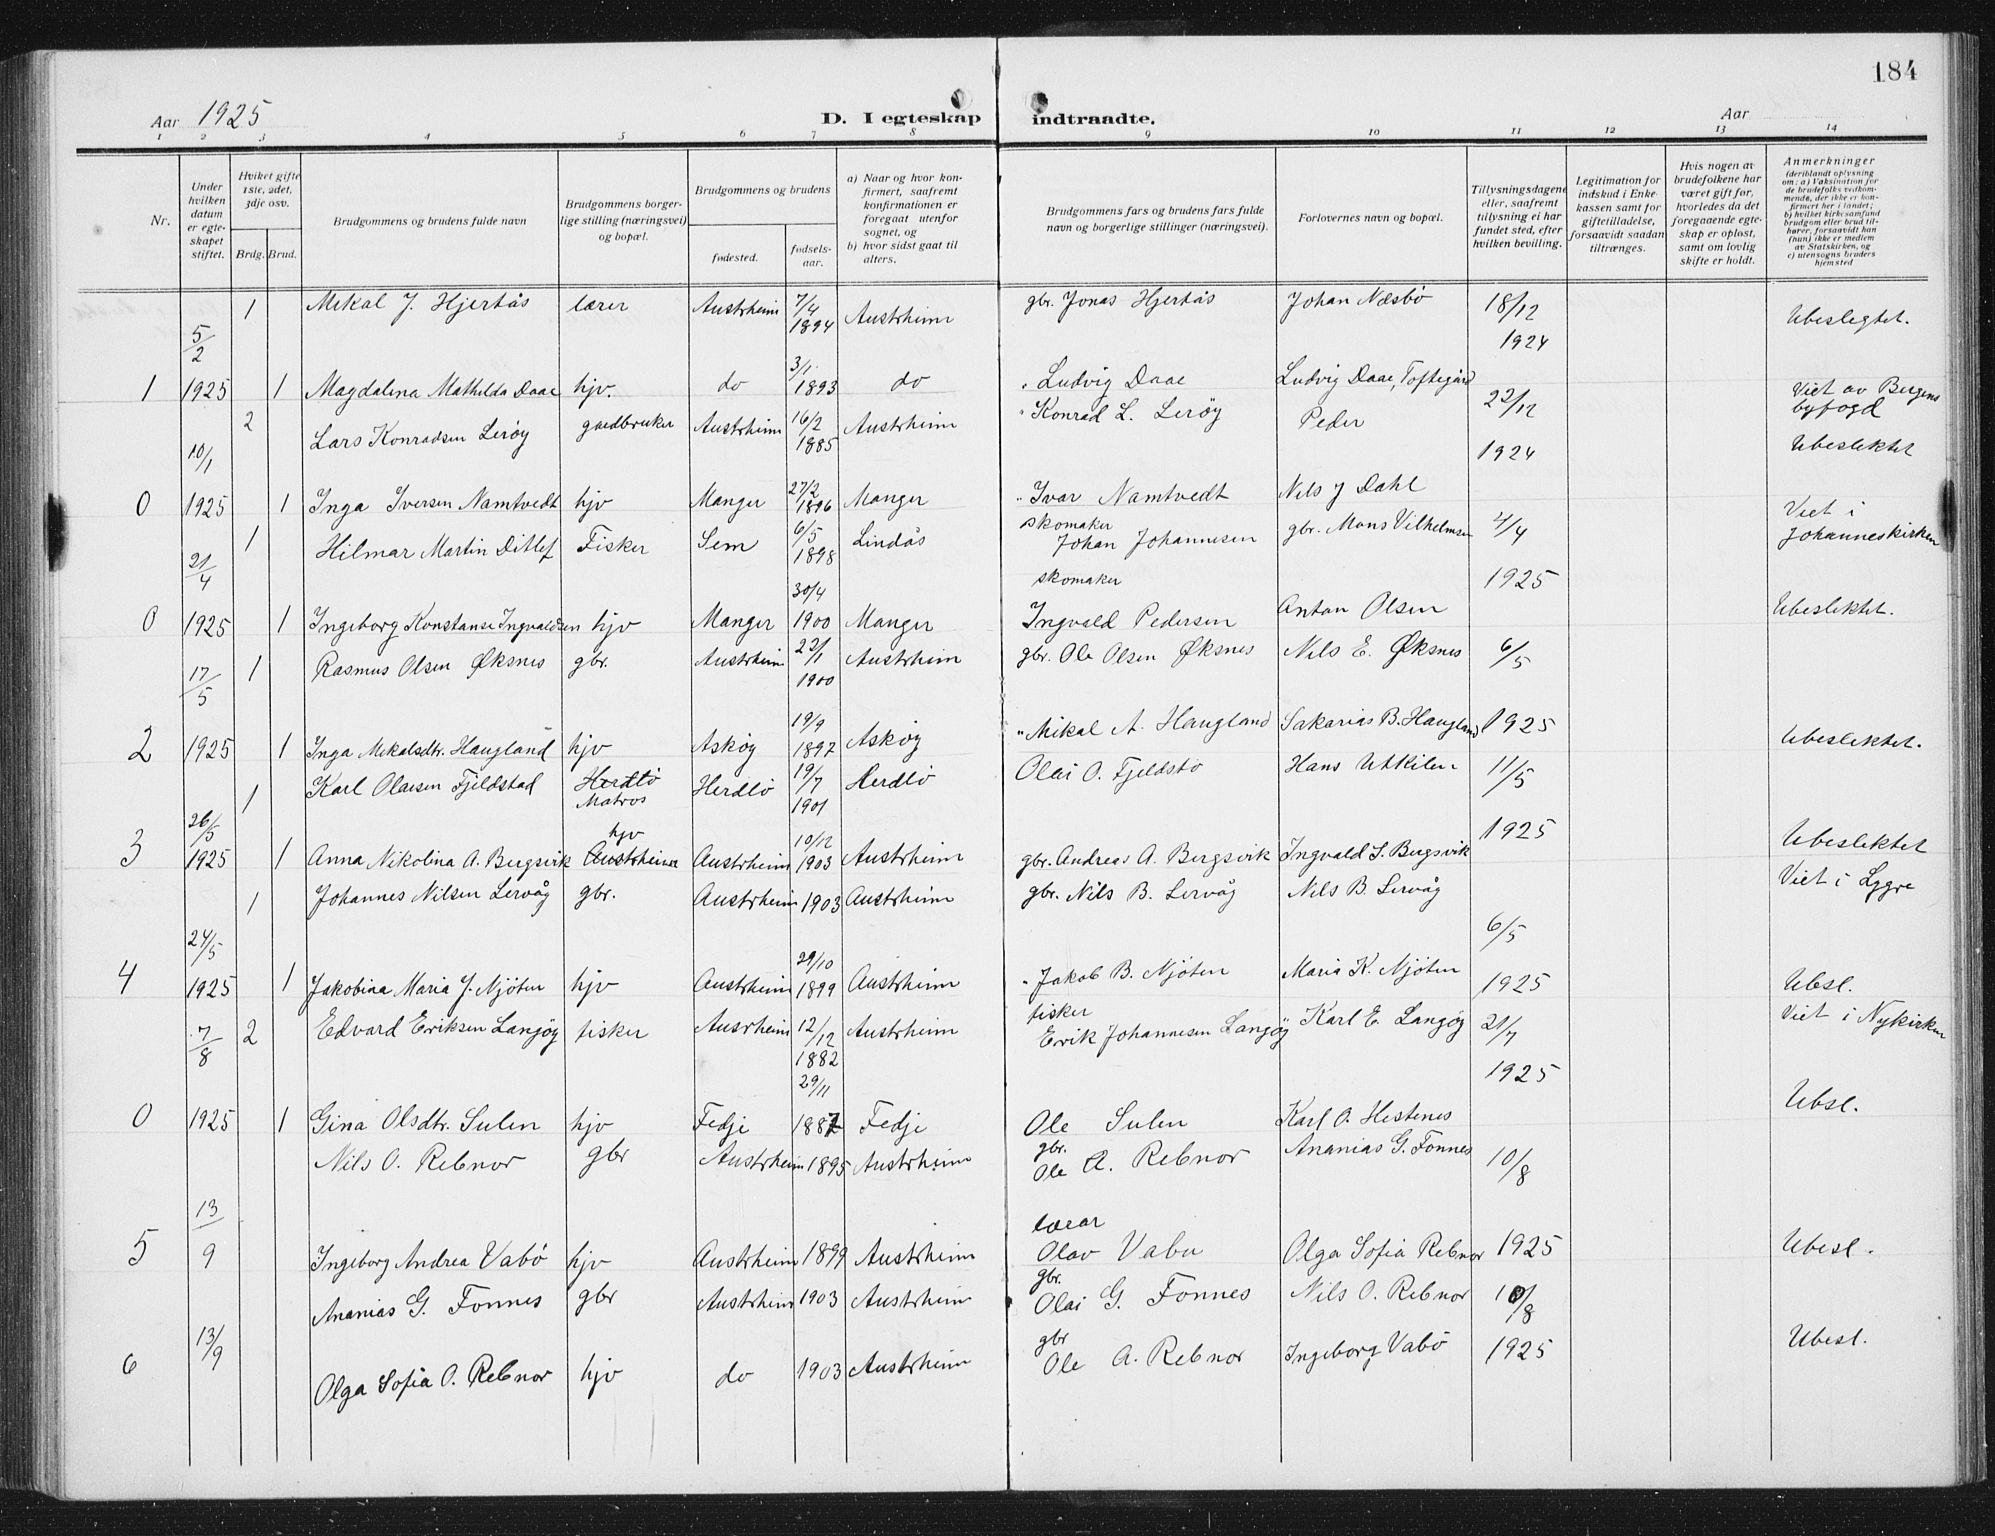 184
Aar 1925 D. I egteskap indtraadte. Aar
1 2 3 4 5 6 7 8 9 10 11 12 13 14
Nr.
Under hvilken datum er egteskapet stiftet.
Hviket gifte 1ste, 2det, 3dje osv.
Brdg. Brud.
Brudgommens og brudens fulde navn
Brudgommens borgerlige stilling (næringsvei) og bopæl.
Brudgommens og brudens
fødested.
fødselsaar.
a) Naar og hvor konfirmert, saafremt konfirmationen er foregaat utenfor sognet, og
b) hvor sidst gaat til alters.
Brudgommens fars og brudens fars fulde navn og borgerlige stillinger (næringsvei).
Forlovernes navn og bopæl.
Tillysningsdagene eller, saafremt tillysning ei har fundet sted, efter hvilken bevilling.
Legitimation for indskud i Enkekassen samt for giftetilladelse, forsaavidt saadan tiltrænges.
Hvis nogen av brudefolkene har været gift før, hvorledes da det foregaaende egteskap er opløst, samt om lovlig skifte er holdt.
Anmerkninger
(deriblandt oplysning om: a) Vaksination for de brudefolks vedkommende, der ikke er konfirmert her i landet;
b) hvilket kirkesamfund brudgom eller brud tilhører, forsaavidt han (hun) ikke er medlem av Statskirken, og
c) utensogns bruders hjemsted
5/2 1 Mekal J. Hjertås lærer Austrheim 7/4 1894 Austrheim gbr. Jonas Hjertås Johan Næsbø 18/12 1924 Ubeslegtet.
1 1925 1 Magdalena Mathilda Daae hjv. do 3/1 1893 do " Ludvig Daae Ludvig Daae, Toftegård 22/12 Viet av Bergens byfogd
10/1 2 Lars Konradsen Lerøy gardbruker Austrheim 16/2 1885 Austrheim " Konrad L. Lerøy Peder 1924 Ubeslektet
0 1925 1 Inga Iversen Namtvedt hjv Manger 27/2 1896 Manger " Ivar Namtvedt Nils J Dahl Viet i Johanneskirken
21/4 1 Hilmar Martin Ditlef Fisker Sem 6/5 1898 Lindås skomaker Johan Johannesen gbr. Mons Vilhelmsen 4/4 1925
0 1925 1 Ingeborg Konstanse Ingvaldsen hjv Manger 30/4 1900 Manger skomaker Ingvald Pedersen Anton Olsen Ubeslektet.
17/5 1 Rasmus Olsen Øksnes gbr. Austrheim 22/1 1900 Austrheim gbr. Ole Olsen Øksnes Nils E. Øksnes 6/5
2 1925 1 Inga Mekalsdtr. Haugland hjv Askøy 19/9 1897 Askøy " Mikal A. Haugland Sakarias B. Haugland 1925 Ubeslektet.
26/5 1 Karl Olaisen Fjeldstad Herdlø Matros Herdlø 19/7 1901 Herdlø Olai O. Fjeldstø Hans Utkilen 11/5
3 1925 1 Anna Nikolina A. Bergsvik hjv Austrheim Austrheim 10/12 1903 Austrheim gbr. Andreas A. Bergsvik Ingvald S. Bergsvik 1925 Ubeslektet
24/5 1 Johannes Nilsen Lervåg gbr. Austrheim 1903 Austrheim gbr. Nils B. Lervåg Nils B. Lervåg 6/5 Viet i Lygre
4 1925 1 Jakobina Maria J. Njøten hjv Austrheim 29/10 1899 Austrheim " Jakob B. Njøten Maria K. Njøten 1925 Ubsl.
7/8 2 Edvard Eriksen Langøy fisker Ausrheim 12/12 1882 Austrheim fisker Erik Johannesen Langøy Karl E. Langøy 21/7 1925 Viet i Nykirken
0 1925 1 Gina Olsdtr. Sulen hjv Fedje 29/11 1887 Fedje Ole Sulen Karl O. Hestenes Ubsl.
13/9 Nils O. Rebnor gbr Austrheim 1895 Austrheim gbr. Ole A. Rebnor Ananias G. Fonnes 10/8
5 Ingeborg Andrea Vabø hjv Austrheim 1899 Austrheim lærar Olav Vabø Olga Sofia Rebnor 1925 Ubesl.
13/9 Ananias G. Fonnes gbr Austrheim 1903 Austrheim gbr. Olai G. Fonnes Nils O. Rebnor 10/8
6 Olga Sofia O. Rebnor hjv do 1903 Austrheim gbr Ole A. Rebnor Ingeborg Vabø 1925 Ubesl.